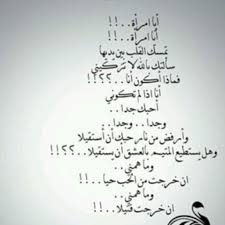 أنا امرأة..!!
أنا امرأة..!!
تمسك القلب بين يديها
سألتك بالله لا تتركيني
فماذا أكون أنا..؟؟؟!!
أنا اذا لم تكوني
أحبك جدا..
وجدا.. وجدا..
وأرفض من نار حبك أن أستقيلا
وهل يستطيع المتيم بالعشق أن يستقيلا..؟؟!!
وما همني..
ان خرجت من الحب حيا..!!
وما همني..
ان خرجت قتيلا..!!